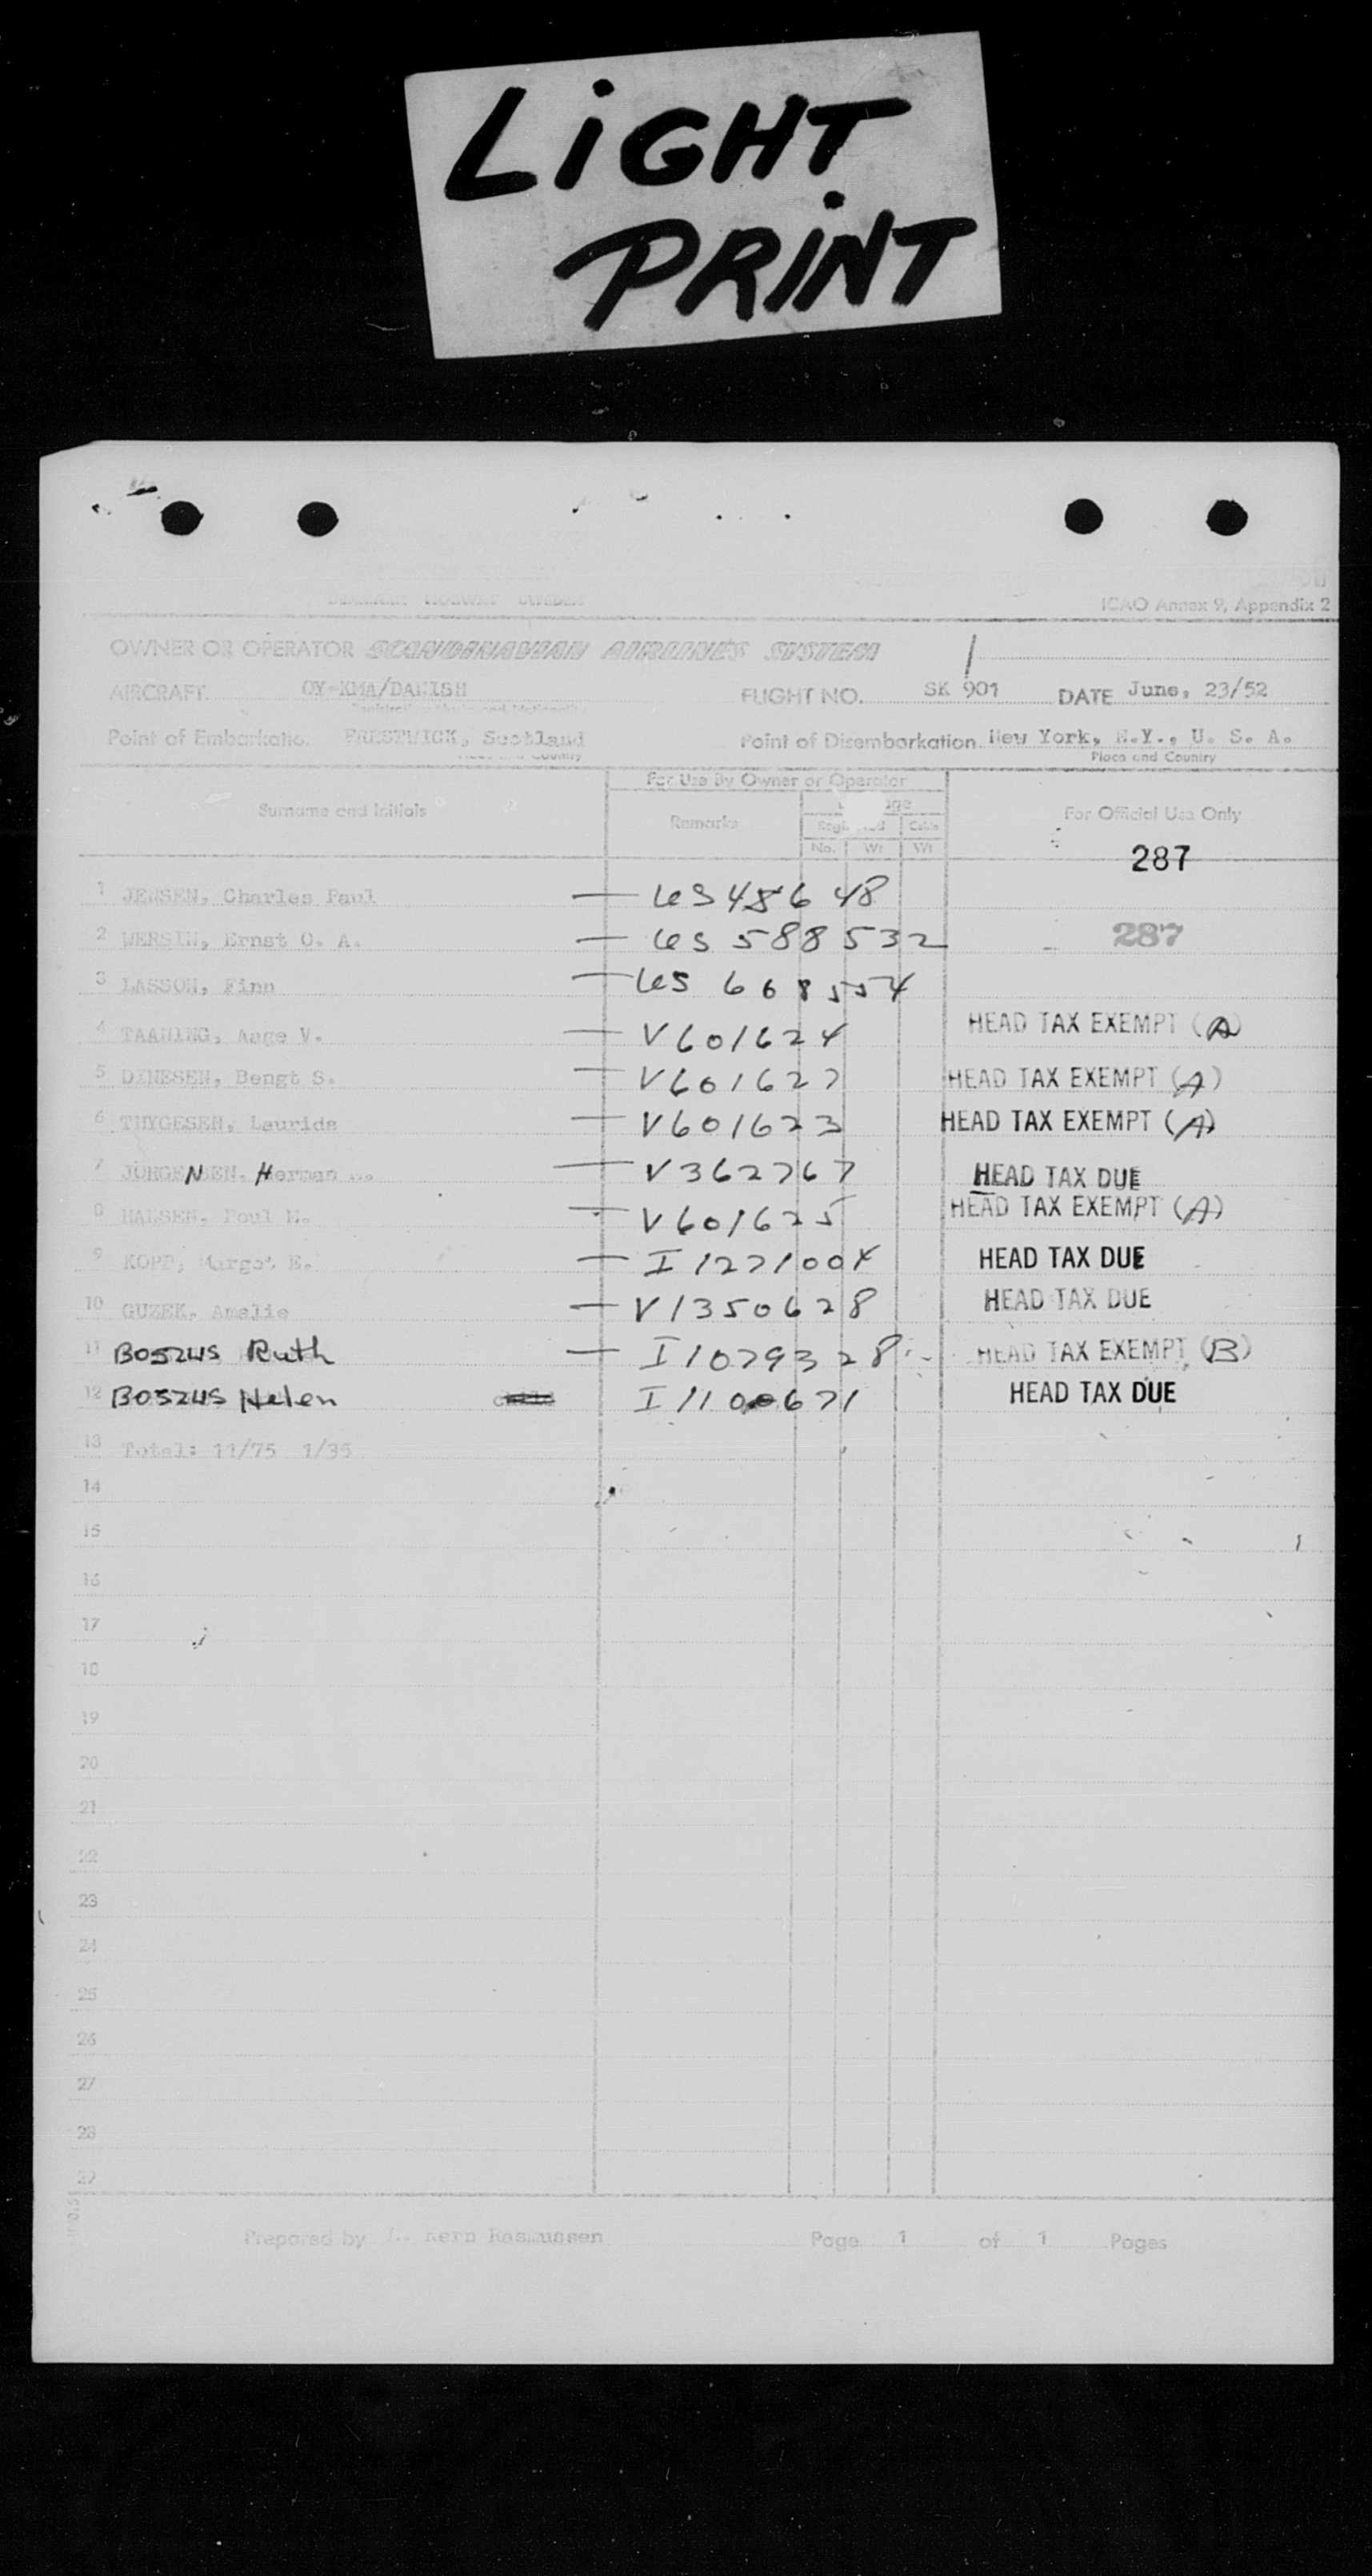 LiGHT
PRiNT
DENMARK NORWAY SWEDEN
ICAO Annex 9, Appendix 2
OWNER OR OPERATOR SCANDINAVIAN AIRLINES SYSTEM
AIRCRAFT OY-KMA/DANISH FLIGHT NO. SK 901 DATE June, 23/52
Point of Embarkatio. PRESTWICK, Scotland Point of Disembarkation New York, N.Y., U. S. A.
Place and Country
For Use By Owner or Operator
Surname and Initials Remarks For Official Use Only
No. Wt Wt
287
1 JENSEN, Charles Paul — US 48648
2 WERSIN, Ernst O. A. — US 588532 287
3 LASSON, Finn — US 668554
4 TAANING, Aage V. — V601624 HEAD TAX EXEMPT (A)
5 DINESEN, Bengt S. — V601627 HEAD TAX EXEMPT (A)
6 THYGESEN, Laurids — V601623 HEAD TAX EXEMPT (A)
7 JORGENSEN, Herman — V362767 HEAD TAX DUE
8 HANSEN, Poul M. - V601625 HEAD TAX EXEMPT (A)
9 KOPP, Margot E. — I1271004 HEAD TAX DUE
10 GUZEK, Amelie — V1350628 HEAD TAX DUE
11 BOSZUS Ruth — I1079328 HEAD TAX EXEMPT (B)
12 BOSZUS Helen I1100671 HEAD TAX DUE
13 Total: 11/75 1/35
14
15
16
17
18
19
20
21
22
23
24
25
26
27
28
29
Prepared by Rasmussen Page 1 of 1 Pages